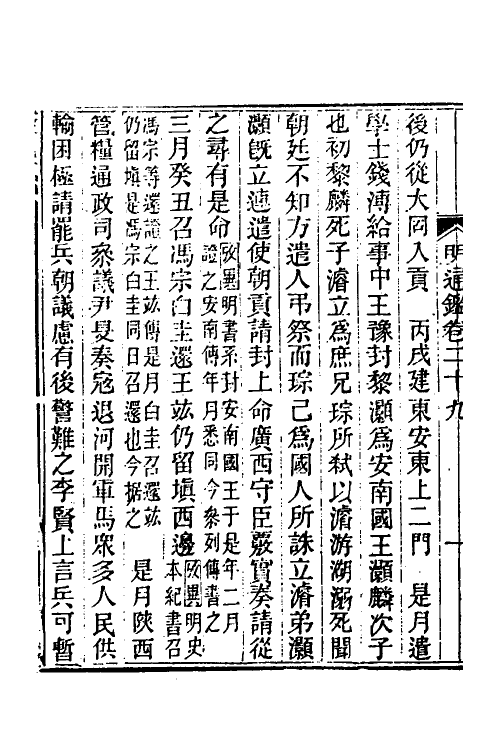 明通鑑卷二十九
一
後仍從大同入貢　丙戌建東安東上二門　是月遣
學士錢溥給事中王豫封黎灝爲安南國王灝麟次子
也初黎麟死子濬立爲庶兄琮所弑以濬游湖溺死聞
朝廷不知方遣人弔祭而琮己爲國人所誅立濬弟灝
灝旣立連遣使朝貢請封上命廣西守臣覈實奏請從
之尋有是命攷異明書系封安南國王于是年二月
證之安南傳年月悉同今叅列傳書之
三月癸丑召馮宗白圭還王竑仍留填西邊攷異明史
本紀書召
馮宗等還證之王竑傳是月白圭召還竑
仍留填是馮宗白圭同日召還也今據之　是月陝西
管糧通政司叅議尹旻奏寇退河開軍馬衆多人民供
輸困極請罷兵朝議慮有後警難之李賢上言兵可暫